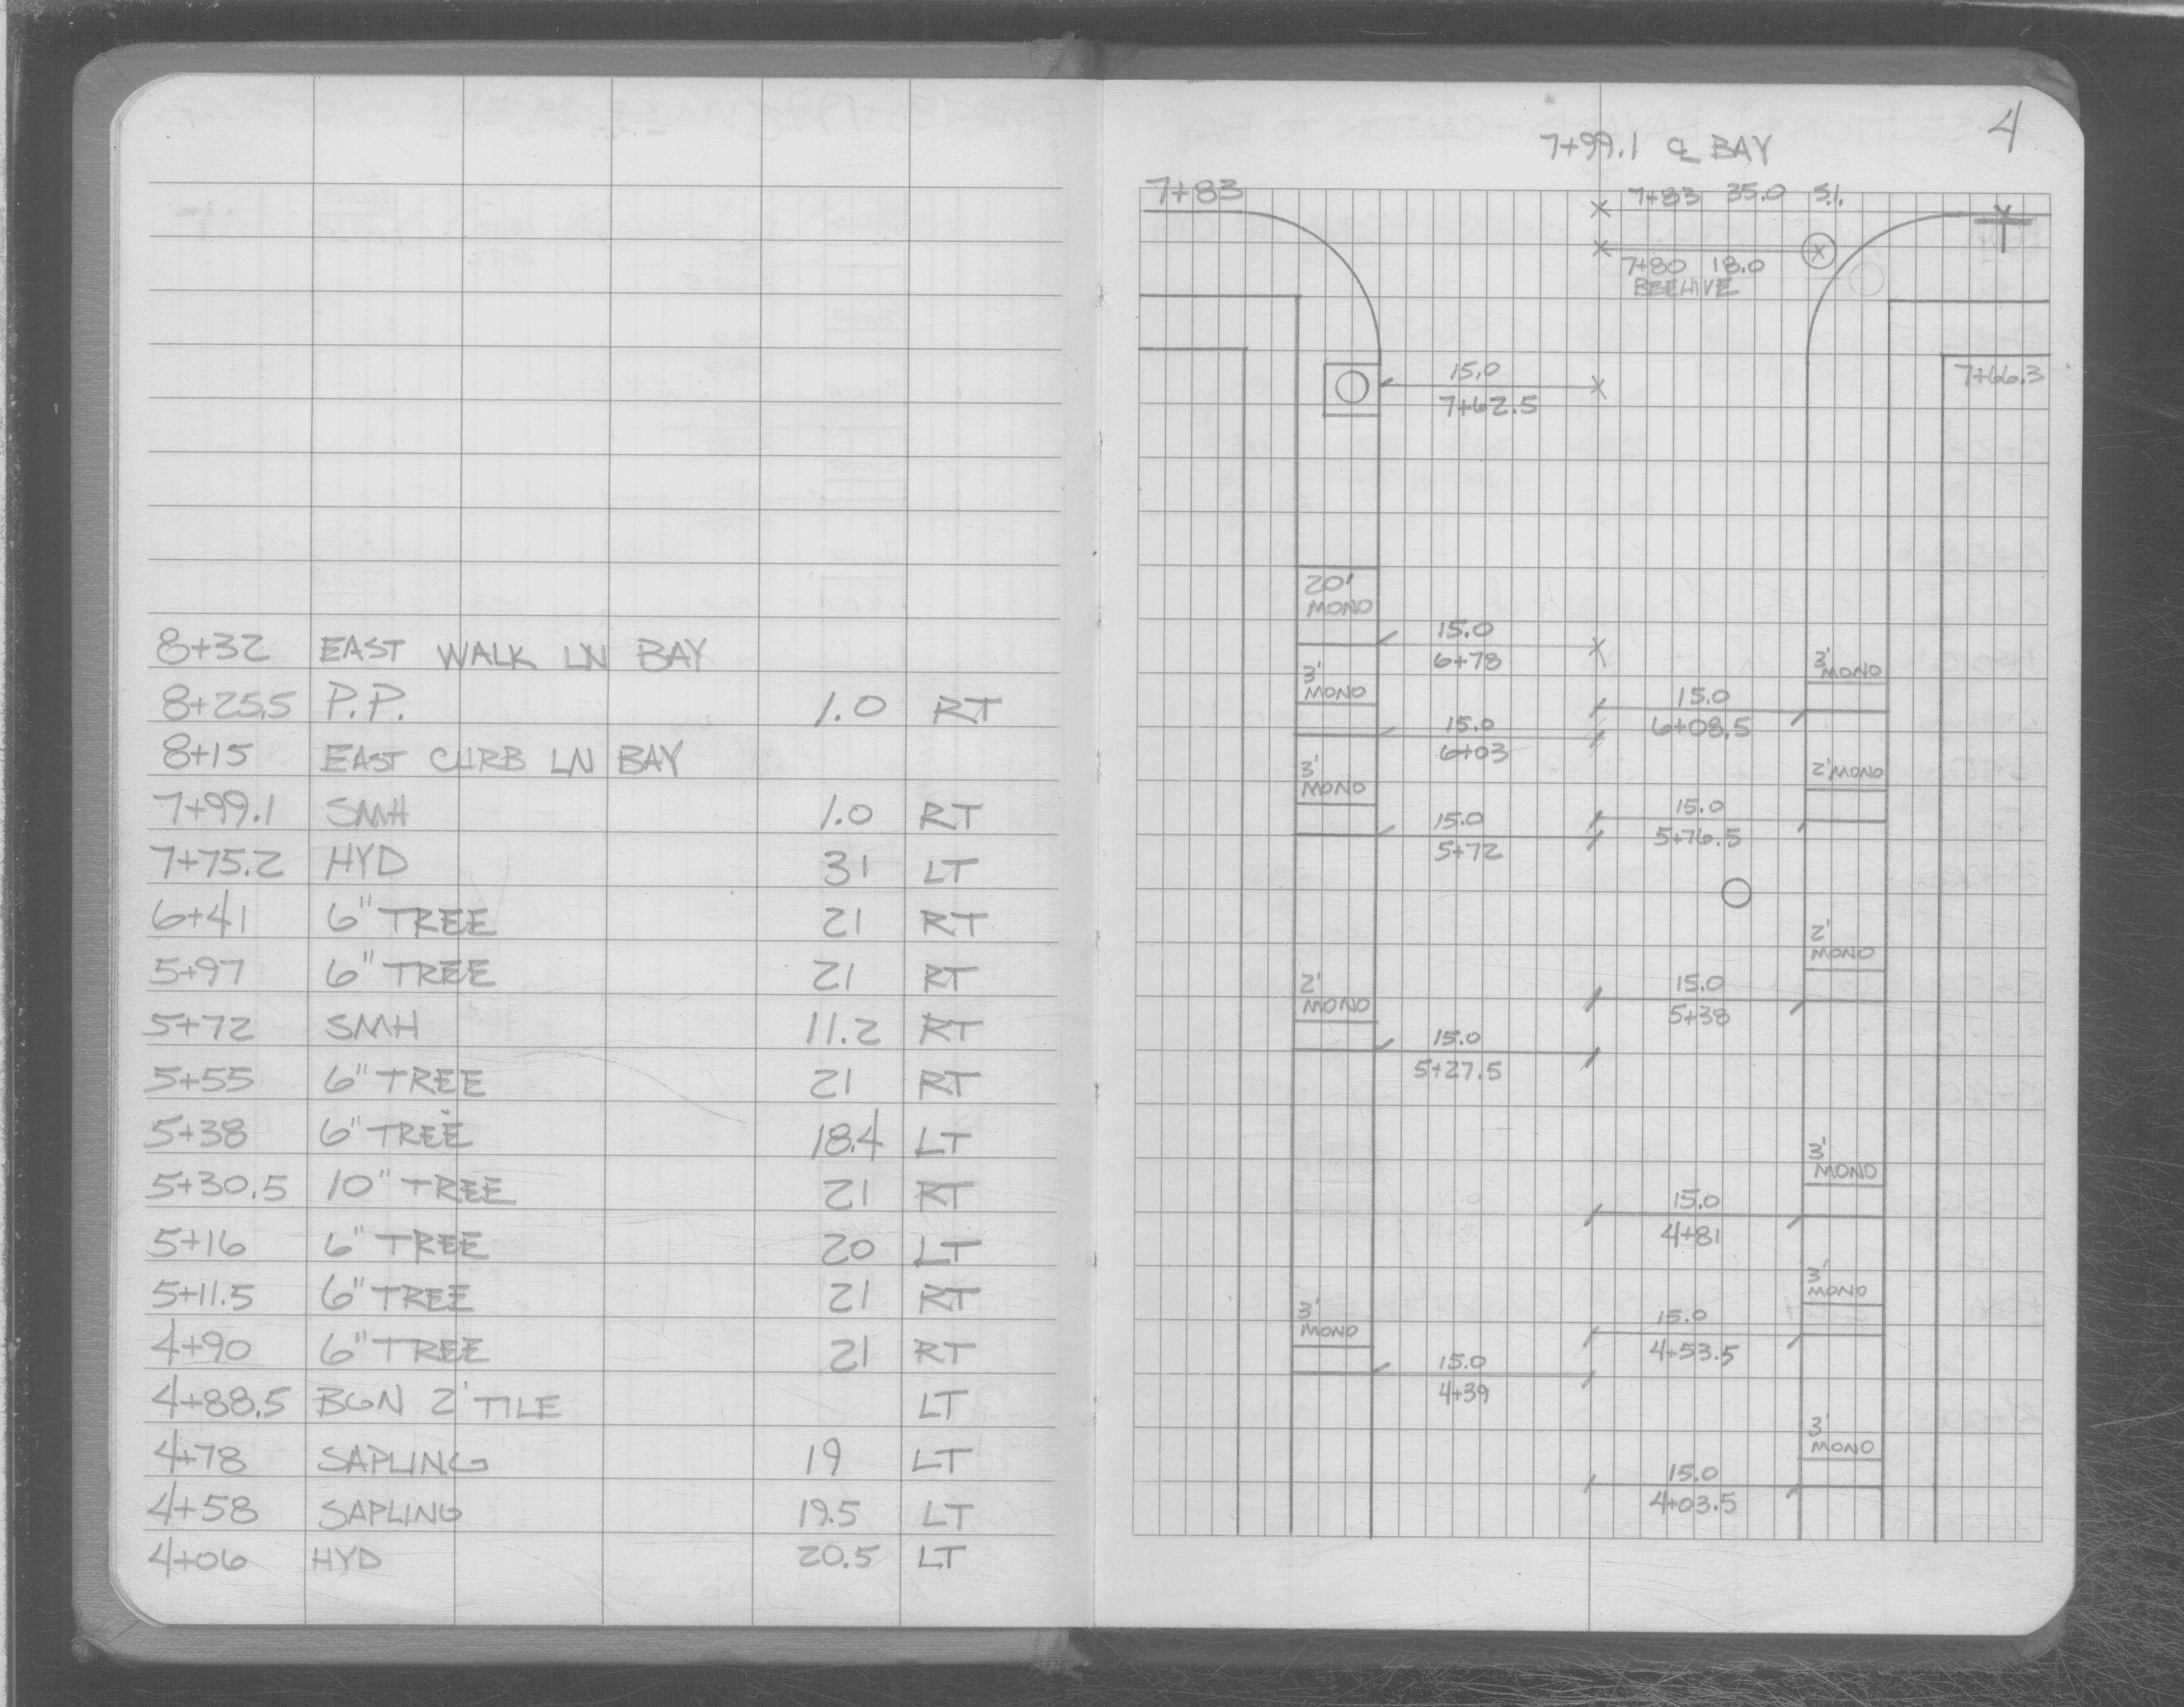 8+32 EAST WALK LN BAY
8+25.5 P.P. 1.0 RT
8+15 EAST CURB LN BAY
7+99.1 SMH 1.0 RT
7+75.2 HYD 31 LT
6+41 6" TREE 21 RT
5+97 6" TREE 21 RT
5+72 SMH 11.2 RT
5+55 6" TREE 21 RT
5+38 6" TREE 18.4 LT
5+30.5 10" TREE 21 RT
5+16 6" TREE 20 LT
5+11.5 6" TREE 21 RT
4+90 6" TREE 21 RT
4+88.5 BGN 2' TILE LT
4+78 SAPLING 19 LT
4+58 SAPLING 19.5 LT
4+06 HYD 20.5 LT
4
7+99.1 ℄ BAY
7+83
7+83 35.0 S.I.
7+80 18.0
BEEHIVE
7+66.3
15.0
7+62.5
20'
MONO
15.0
6+78
3'
MONO
3'
MONO
15.0
6+08.5
15.0
6+03
3'
MONO
2' MONO
15.0
5+76.5
15.0
5+72
2'
MONO
15.0
5+38
2'
MONO
15.0
5+27.5
3'
MONO
15.0
4+81
3'
MONO
15.0
4+53.5
3'
MONO
15.0
4+39
3'
MONO
15.0
4+03.5